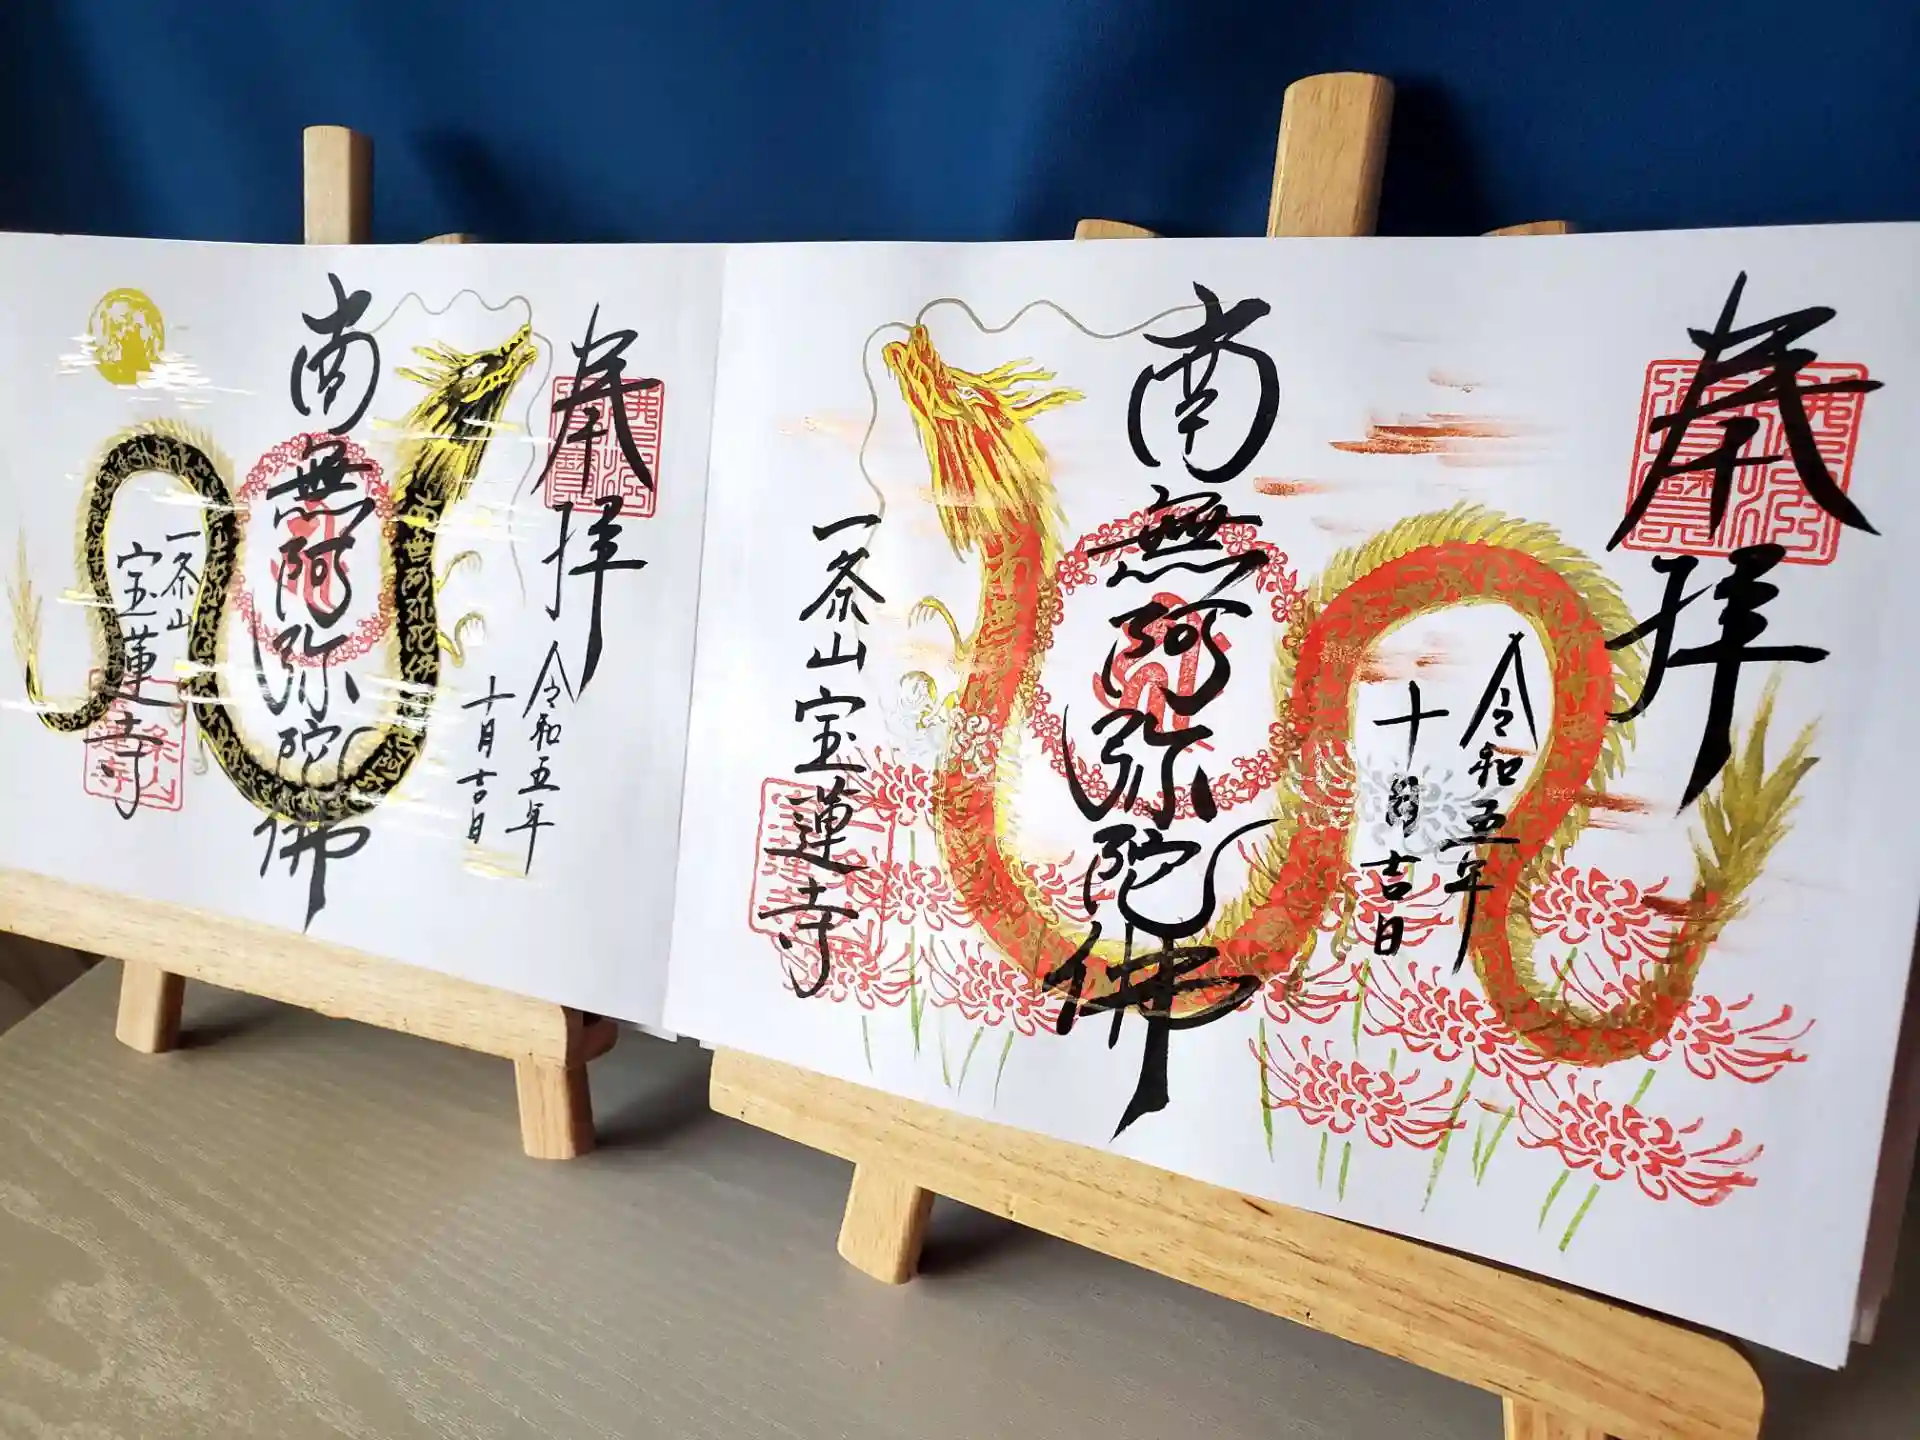 奉拝
令和五年
十月吉日
南無阿弥陀佛
一条山
宝蓮寺
奉拝
令和五年
十月吉日
南無阿弥陀佛
一条山宝蓮寺